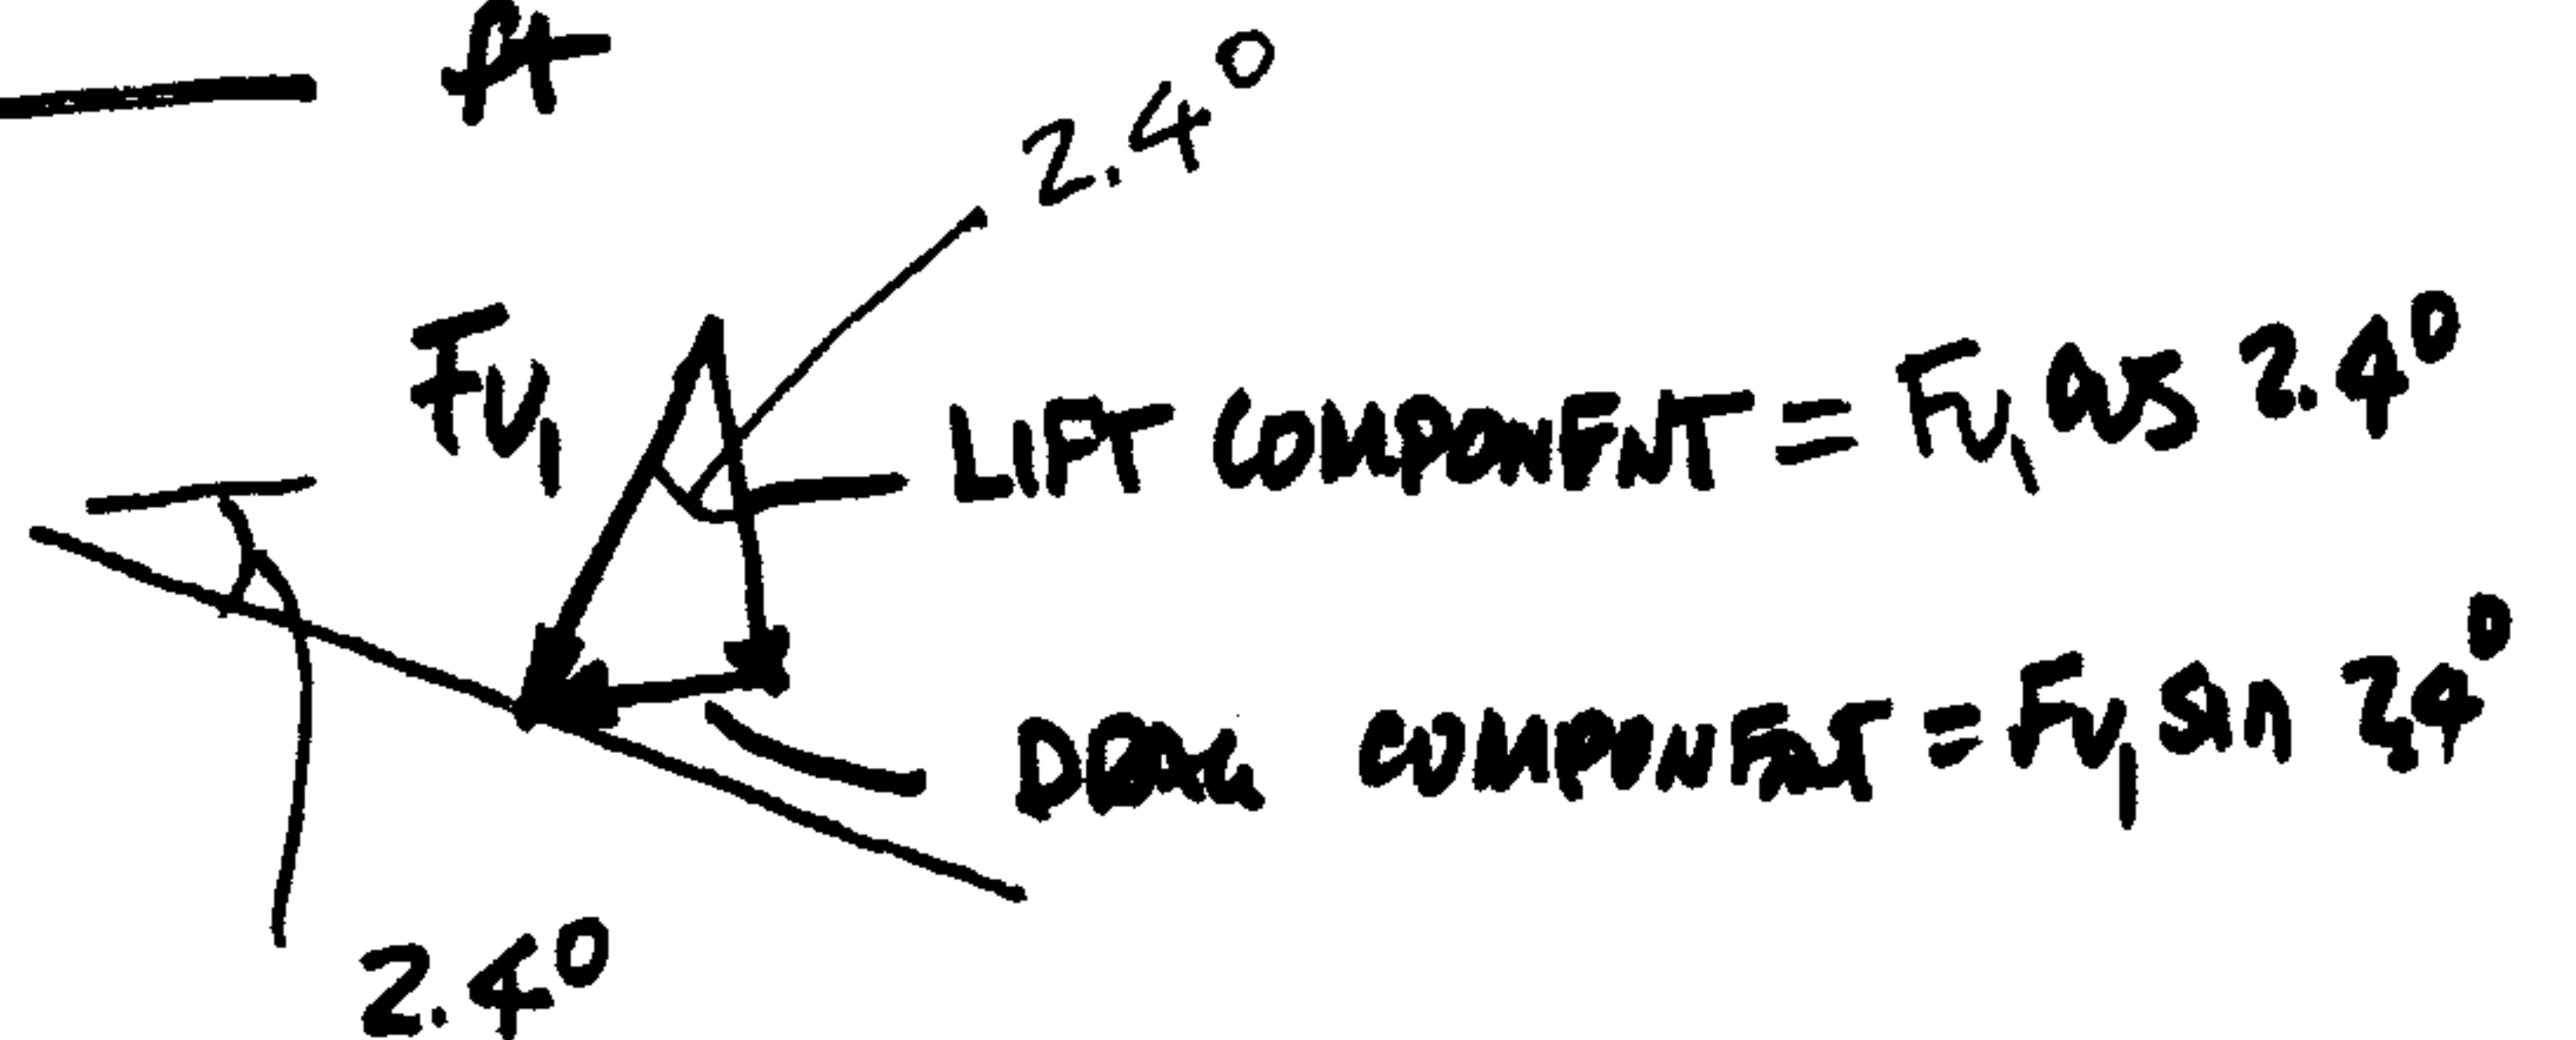 ft
2.4°
Fv₁
LIFT COMPONENT = Fv₁ cos 2.4°
DRAG COMPONENT = Fv₁ sin 2.4°
2.4°